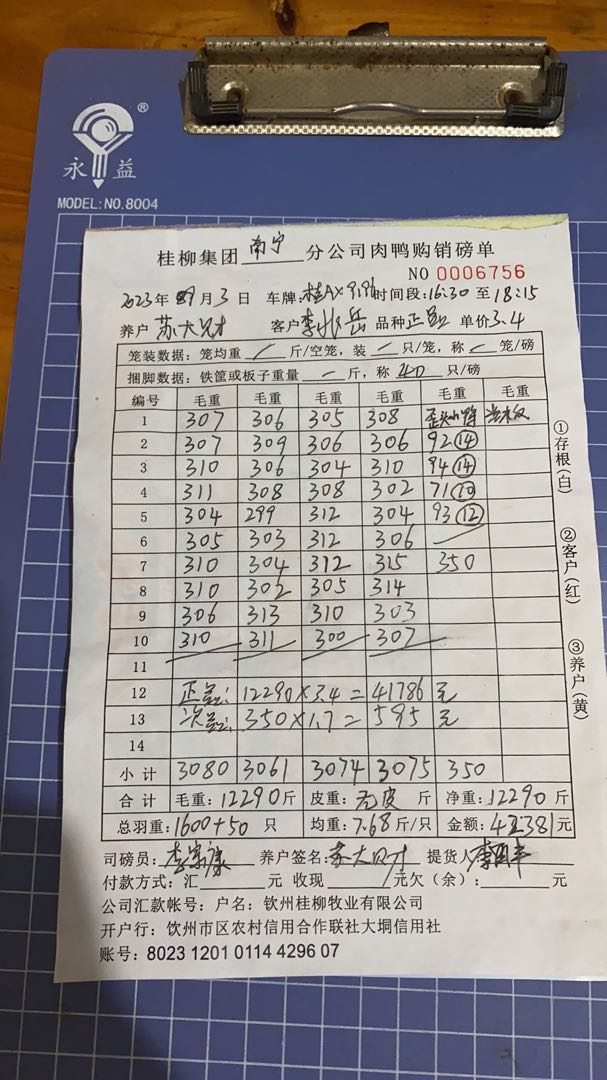 ®
永益
MODEL:NO.8004
桂柳集团 南宁 分公司肉鸭购销磅单
NO 0006756
2023年 9月3日 车牌:桂AX9196 时间段:16:30 至 18:15
养户 苏大只才 客户 李 岳 品种 正品 单价 3.4
笼装数据：笼均重 / 斤/空笼，装 / 只/笼，称 / 笼/磅
捆脚数据：铁筐或板子重量 — 斤，称 40 只/磅
编号 毛重 毛重 毛重 毛重 毛重 毛重
1 307 306 305 308 歪头小鸭
2 307 309 306 306 92⑭
3 310 306 304 310 94⑭
4 311 308 308 302 71⑩
5 304 299 312 304 93⑫
6 305 303 312 306 —
7 310 304 312 315 350
8 310 302 305 314
9 306 313 310 303
10 310 311 300 307
11
12 正品: 12290×3.4=41786元
13 次品: 350×1.7=595元
14
小计 3080 3061 3074 3075 350
合计 毛重:12290斤 皮重:无皮 斤 净重:12290斤
总羽重:1600+50 只 均重:7.68斤/只 金额:42381元
司磅员: 李 康 养户签名: 苏大只才 提货人 李
付款方式:汇 元 收现 / 元欠（余）: 元
公司汇款帐号：户名：钦州桂柳牧业有限公司
开户行：钦州市区农村信用合作联社大垌信用社
账号：8023 1201 0114 4296 07
①存根(白)
②客户(红)
③养户(黄)